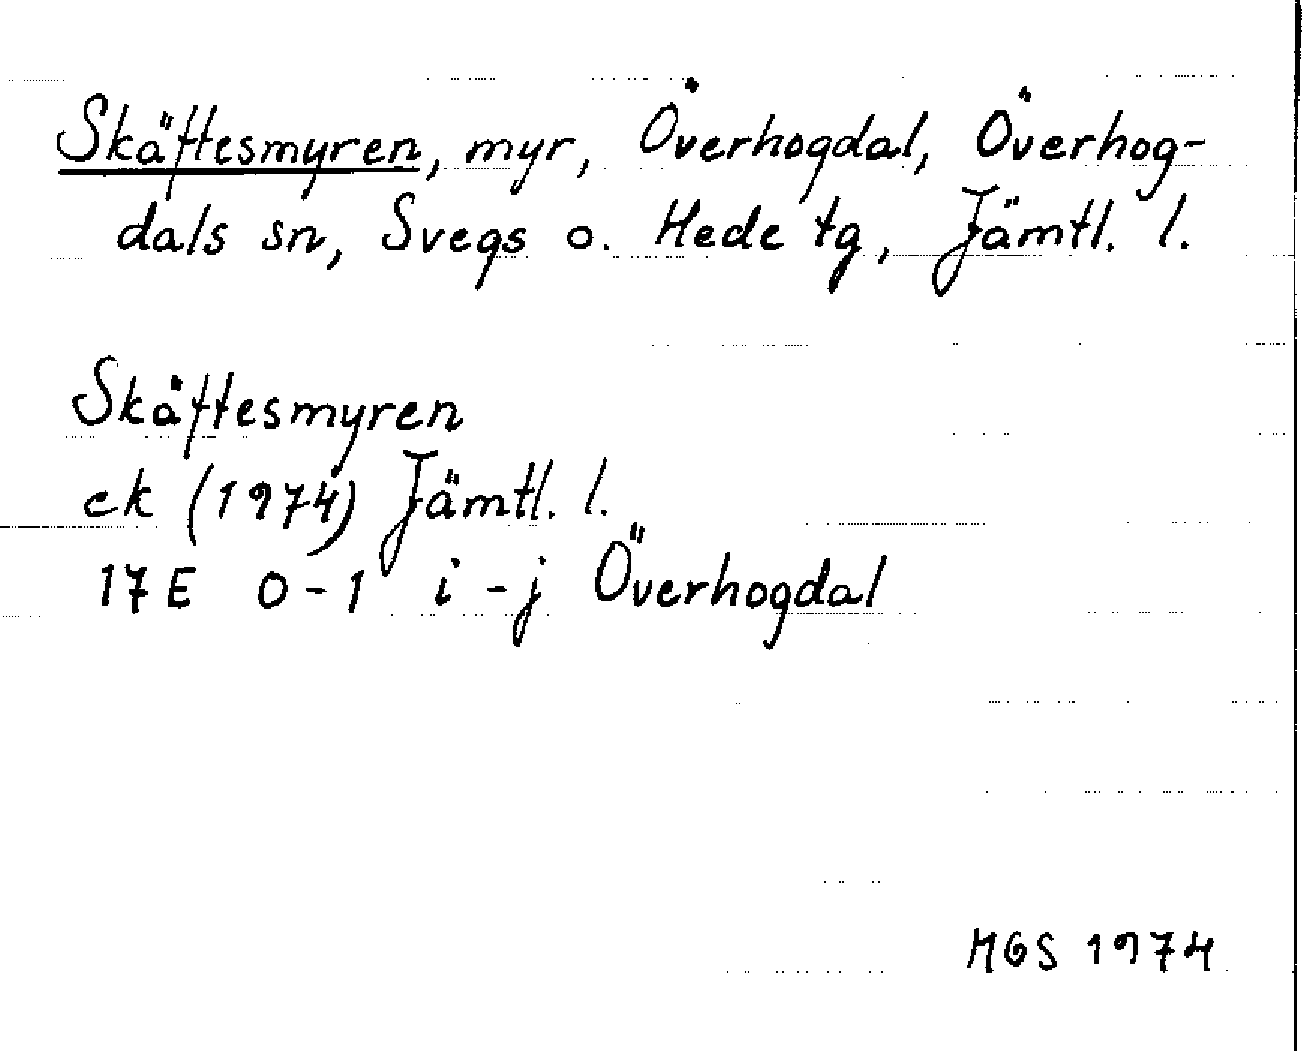 Skäftesmyren, myr, Överhogdal, Överhog-
dals sn, Svegs o. Hede tg, Jämtl. l.
Skäftesmyren
ek (1974) Jämtl. l.
17E 0-1 i-j Överhogdal
MGS 1974